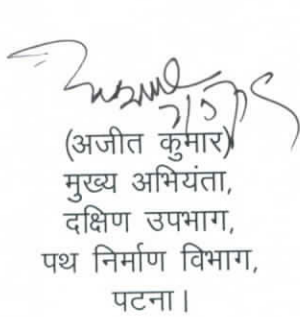 (अजीत कुमार)
मुख्य अभियंता,
दक्षिण उपभाग,
पथ निर्माण विभाग,
पटना।